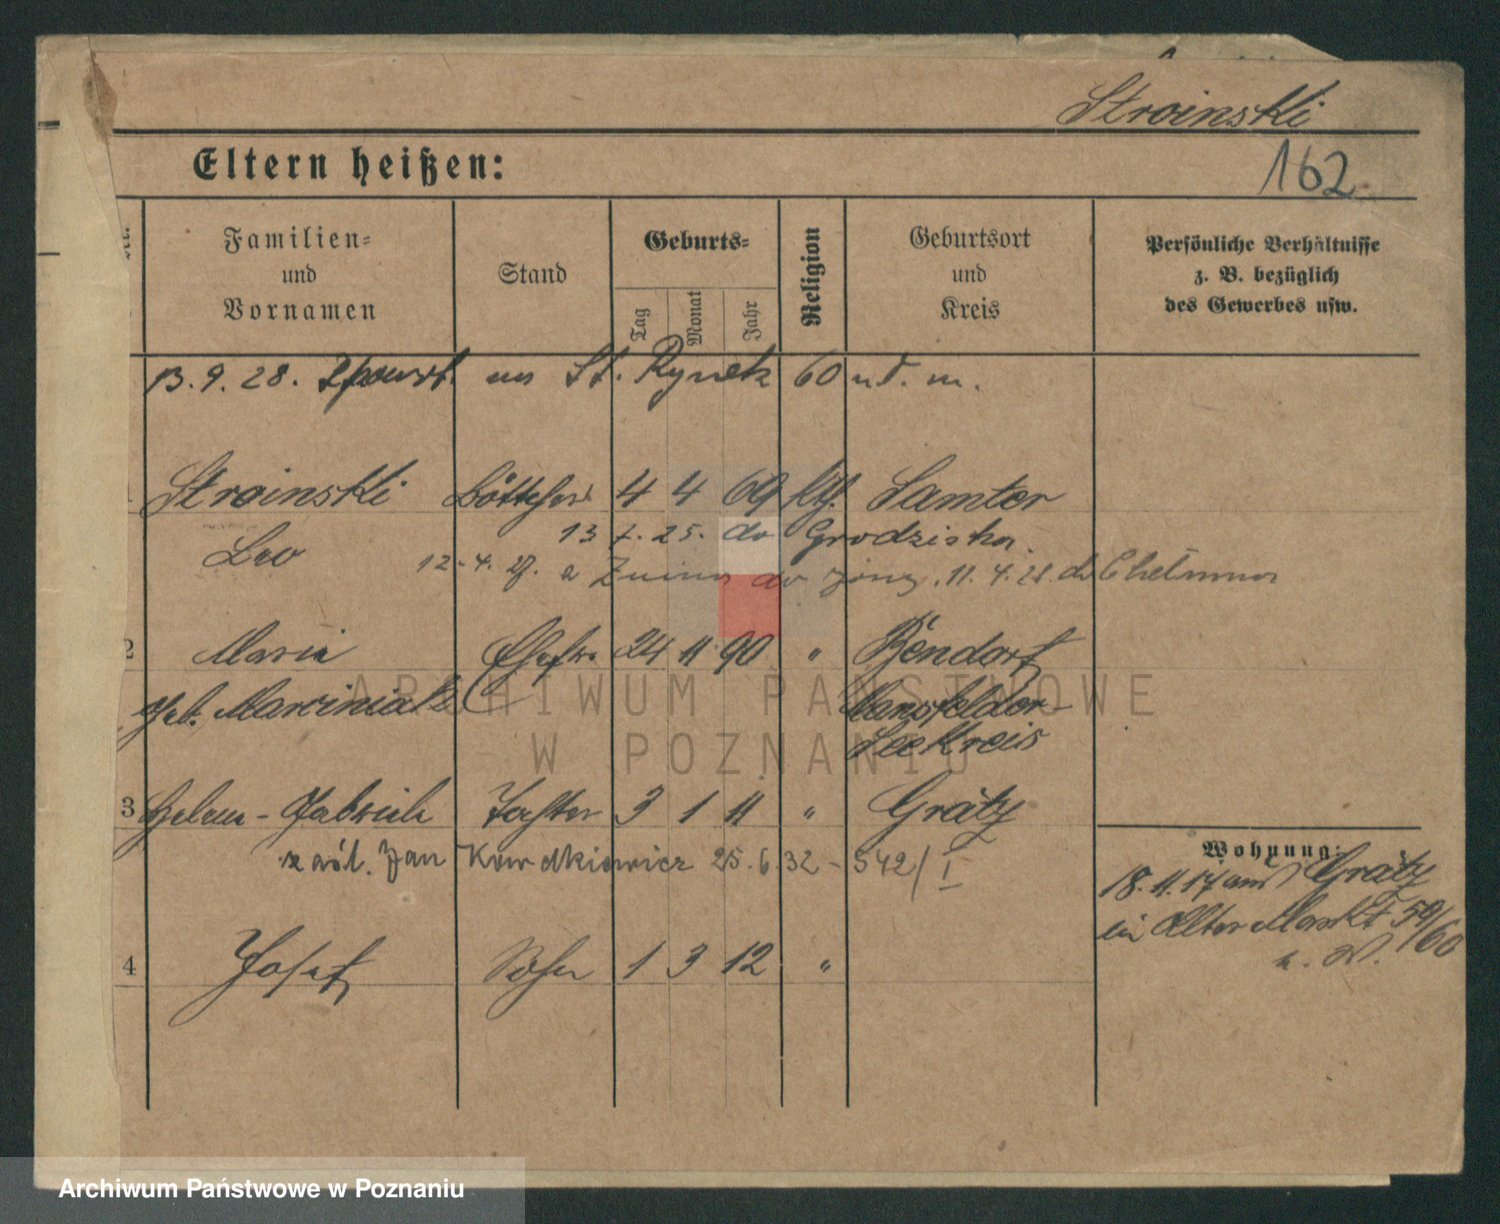 Stroinski
Eltern heißen:
162
Familien-
und
Vornamen
Stand
Geburts-
Tag
Monat
Jahr
Religion
Geburtsort
und
Kreis
Persönliche Verhältnisse
z. B. bezüglich
des Gewerbes usw.
13. 9. 28. na St. Rynek 60 u. d. m.
Stroinski Böttcher 4 4 69 kth. Samter
Leo
13 7. 25. do Grodziska.
12. 4. 27. z Żnina do żony. 11. 4. 28 do Chełmna
2 Maria Ehefr. 24 11 90 " Bendorf
geb. Marciniak Mansfelder
Seekreis
3 Helene - Gabriele Tochter 3 1 11 " Grätz
zaśl. Jan 25. 6. 32 - 542/I
Wohnung:
18. 11. 17 aus Grätz
in Alter Markt 59/60
b. W.
4 Josef Sohn 1 3 12 "
ARCHIWUM PAŃSTWOWE
W POZNANIU
Archiwum Państwowe w Poznaniu